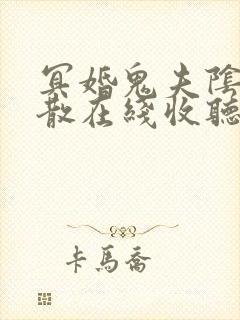 冥婚鬼夫陰
散在綫收聽
卡馬喬